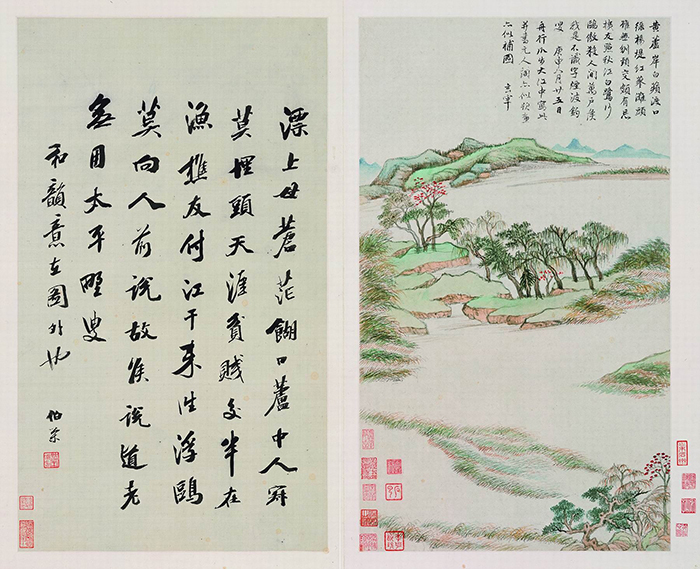 黃蘆岸白蘋渡口
綠楊堤紅蓼灘頭
雖無刎頸交頗有忘
機友點秋江白鷺沙
鷗傲殺人間萬戶侯
我是不識字煙波釣
叟 庚申八月廿五日
舟行瓜步大江中寫此
并書元人詞亦似題畫
亦似補圖 玄宰
漂上母蒼茫餬口蘆中人
莫埋頭天涯貧賤交半在
漁樵友付江干來往浮鷗
莫向人前說故侯說道老
無用太平野叟
和韻意在圖外也